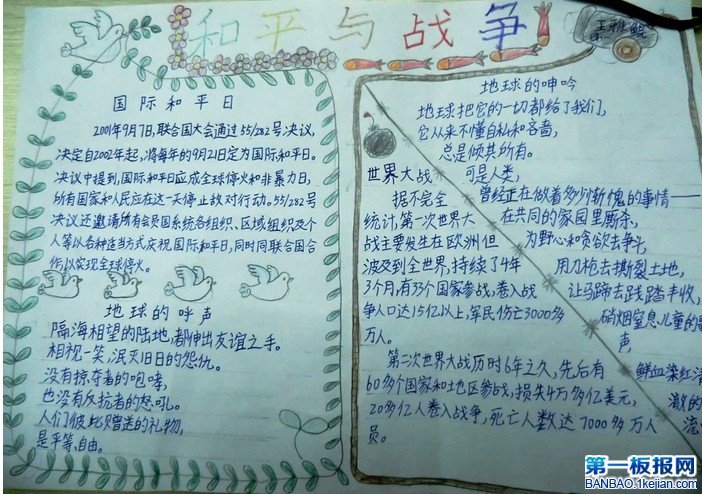 和平与战争
国际和平日
2001年9月7日,联合国大会通过55/282号决议,
决定自2002年起,将每年的9月21日定为国际和平日。
决议中提到,国际和平日应成全球停火和非暴力日,
所有国家和人民应在这一天停止敌对行动。55/282号
决议还邀请所有会员国系统各组织、区域组织及个
人等以各种适当方式庆祝国际和平日,同时同联合国合
作,以实现全球停火。
地球的呼声
隔海相望的陆地,都伸出友谊之手。
相视一笑,泯灭旧日的怨仇。
没有掠夺者的咆哮,
也没有反抗者的怒吼。
人们彼此赠送的礼物,
是平等、自由。
地球的呻吟
地球把它的一切都给了我们,
它从来不懂自私和吝啬,
总是倾其所有。
可是人类,
曾经正在做着多少惭愧的事情——
在共同的家园里厮杀,
为野心和贪欲去争斗,
用刀枪去撕裂土地,
让马蹄去践踏丰收,
硝烟窒息儿童的
声,
鲜血染红清
激的
流
世界大战
据不完全
统计,第一次世界大
战主要发生在欧洲但
波及到全世界,持续了4年
3个月,有33个国家参战,卷入战
争人口达15亿以上,军民伤亡3000多
万人。
第二次世界大战历时6年之久,先后有
60多个国家和地区参战,损失4万多亿美元,
20多亿人卷入战争,死亡人数达7000多万人
员。
第一板报网
BANBAO.1kejian.com